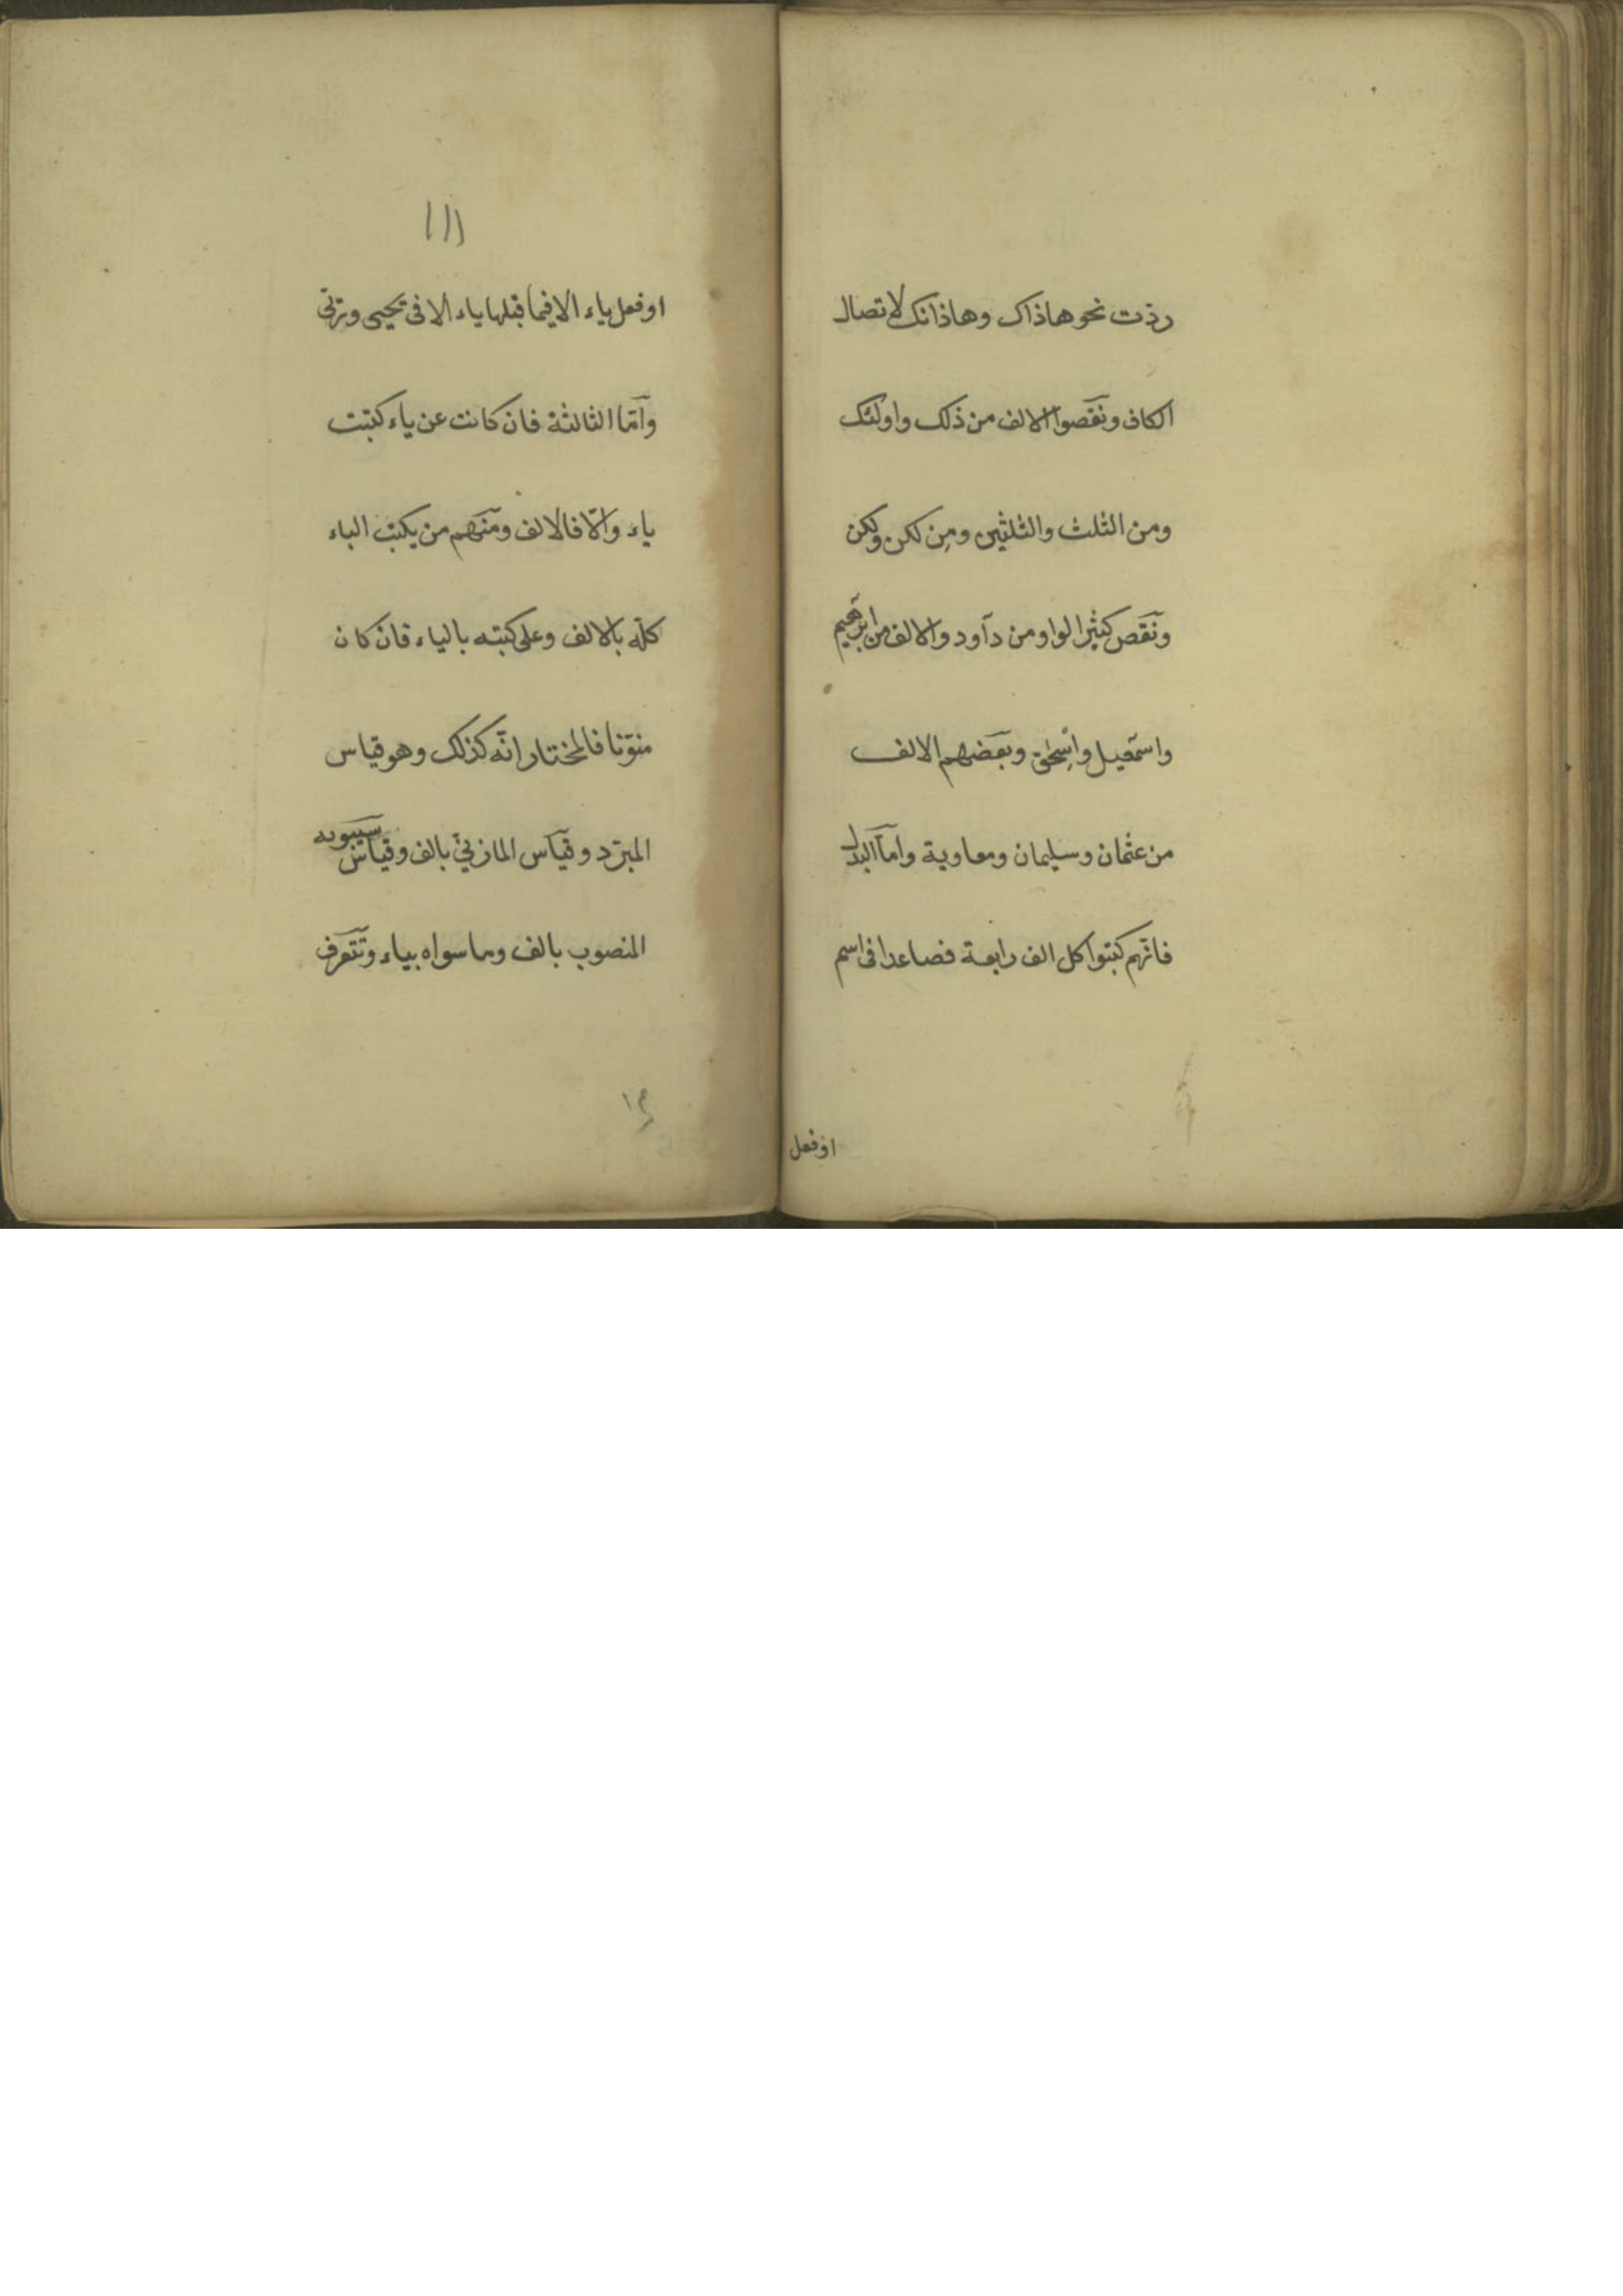 ردّت نحو هاذاك وهاذانك لاتصال
الكاف ونقصوا الالف من ذلك واولئك
ومن الثلث والثلثين ومن لكن ولكنّ
ونقص كثيرا الواو من داود والالف من ابرهيم
واسمعيل واسحق وبعضهم الالف
من عثمان وسليمان ومعاوية واما البدل
فانهم كتبوا كل الف رابعة فصاعدا فى اسم
اوفعل
١١١
او فعل ياء الا فيما قبلها ياء الا فى يحيى
وامّا الثالثة فان كانت عن ياء كتبت
ياء والّا فالالف ومنهم من يكتب الباء
كلّه بالالف وعلى كتبه بالياء فان كان
منوّنا فالمختار انّه كذلك وهو قياس
المبرّد وقياس المازنيّ بالف وقياس سيبويه
المنصوب بالف وما سواه بياء وتتعرف